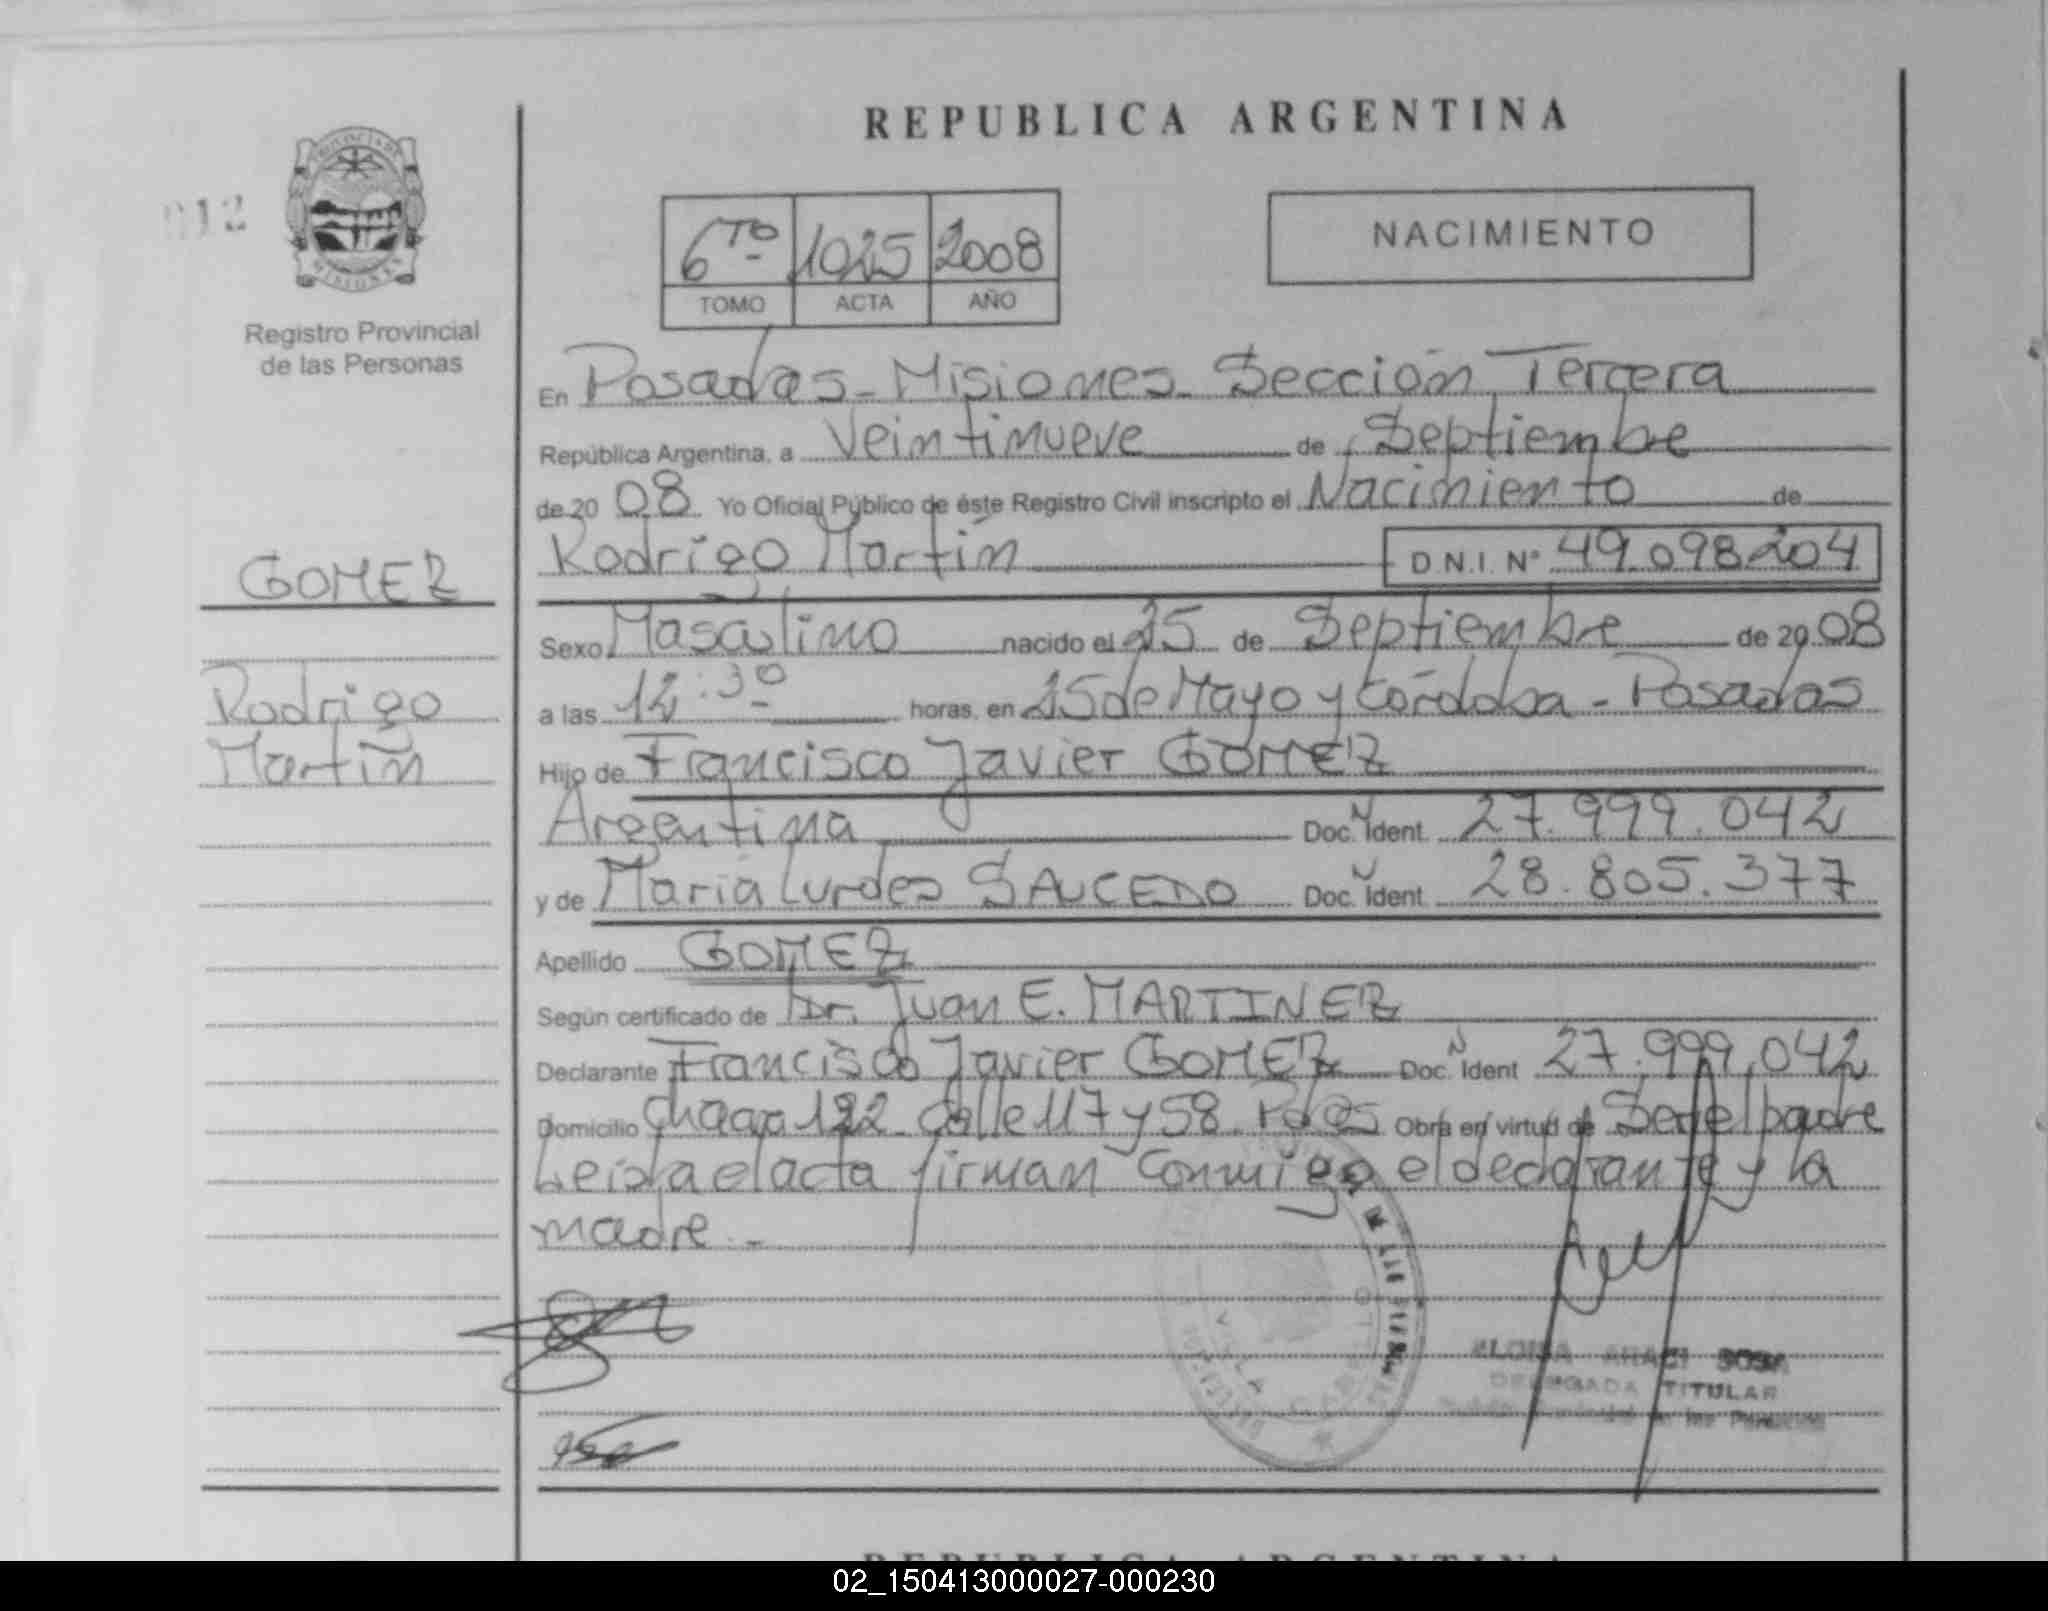 REPUBLICA ARGENTINA
012
6TO 1025 2008
TOMO ACTA AÑO
NACIMIENTO
Registro Provincial
de las Personas
En Posadas - Misiones - Sección Tercera
República Argentina, a Veintinueve de Septiembre
de 2008 Yo Oficial Público de éste Registro Civil inscripto el Nacimiento de
Rodrigo Martín D.N.I. Nº 49.098.204
GOMEZ
Rodrigo
Martín
Sexo Masculino nacido el 25 de Septiembre de 2008
a las 12:30 horas, en 25 de Mayo y Córdoba - Posadas
Hijo de Francisco Javier GOMEZ
Argentina Doc. N Ident. 27.999.042
y de María Lurdes SAUCEDO Doc. Ident. 28.805.377
Apellido GOMEZ
Según certificado de Dr. Juan E. MARTINEZ
Declarante Francisco Javier GOMEZ Doc. N Ident 27.999.042
Domicilio Chacra 122 Calle 117 y 58 Pdas Obra en virtud de Ser el padre
Leída el acta firman conmigo el declarante y la
madre.-
ARACI SOSA
DELEGADA TITULAR
de las Personas
REPUBLICA ARGENTINA
02_150413000027-000230